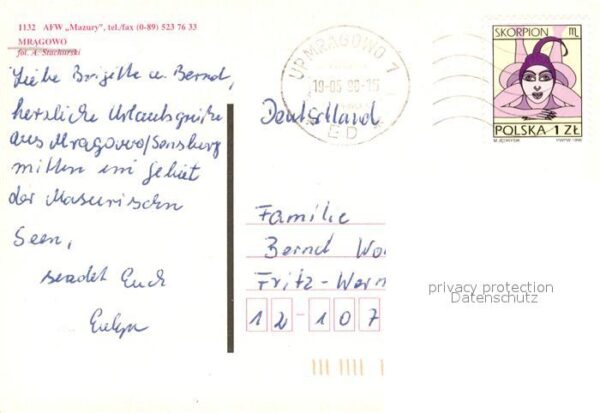 1132 AFW „Mazury", tel./fax (0-89) 523 76 33
MRĄGOWO
fot. A. Stachurski
Liebe Brigitte u. Bernd,
herzliche Urlaubsgrüße
aus Mrągowo/Sensburg
mitten im Gebiet
der Masurischen
Seen,
sendet Euch
Evelyn
UP MRĄGOWO 1
19-05 98-15
ED
SKORPION
POLSKA 1 ZŁ
PWPW 1996
Deutschland
Familie
Bernd Wo
Fritz-Wern
12-107
privacy protection
Datenschutz